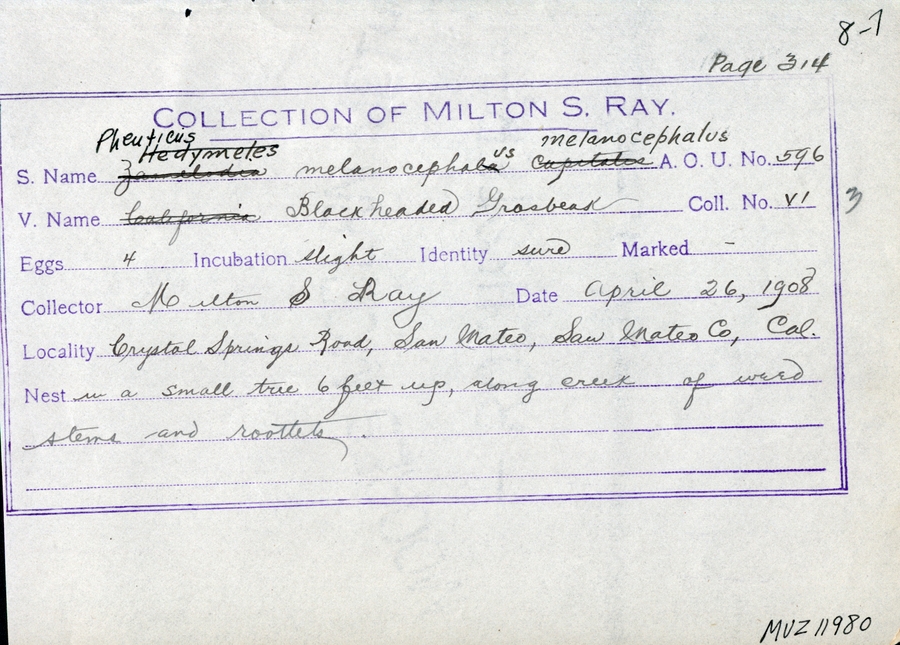 8-7
Page 314
COLLECTION OF MILTON S. RAY.
Pheuticus melanocephalus
Hedymeles
S. Name Zamelodia melanocephala us capitalis A. O. U. No. 596
V. Name California Blackheaded Grosbeak Coll. No. VI 3
Eggs 4 Incubation slight Identity sure Marked –
Collector Milton S Ray Date April 26, 1908
Locality Crystal Springs Road, San Mateo, San Mateo Co, Cal.
Nest in a small tree 6 feet up, along creek of weed
stems and rootlets.
MVZ 11980